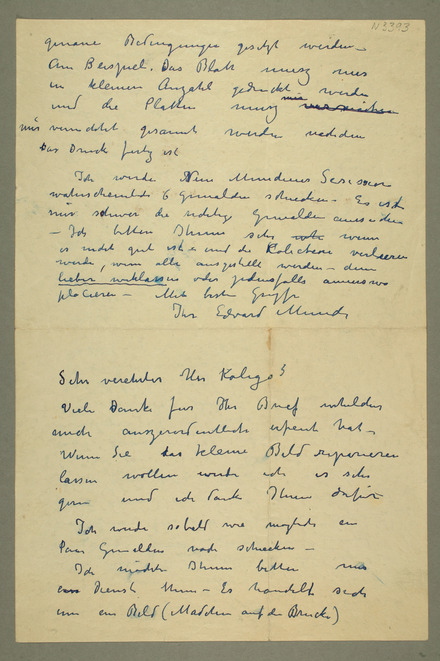 N 2393
genaue Bedingungen gesetzt werden –
Am Beispiel. Das Blatt musz nur
in kleinen Anzahl gedruckt werden
und die Platten musz mir
mir vernichtet gesamt werden nachdem
Das Druck fertig ist
Ich werde Münchener Secession
wahrscheinlich 6 Gemälden schicken – Es ist
mir schwer die richtige Gemälden
– Ich bitten Ihnen sehr wenn
es nicht gut ist und die Kolletion verlieren
werde, wenn alle ausgestellt werden – dem
lieber weklassen oder jedenfalls anderswo
placieren – Mit besten Grüsse
Ihr Edvard Munch
Sehr verehrter Herr Kollege!
Viele Danke für Ihr Brief welches
mich auszerordentlich erfreut hat –
Wenn Sie das kleine Bild reparieren
lassen wollen werde ich es sehr
gern und ich danke Ihnen dafür
Ich werde sobald wie möglich ein
Paar Gemälden noch schicken –
Ich möchte Ihnen bitten mir
ein Dienst thun – Es handelt sich
um ein Bild (Mädchen auf der Brücke)